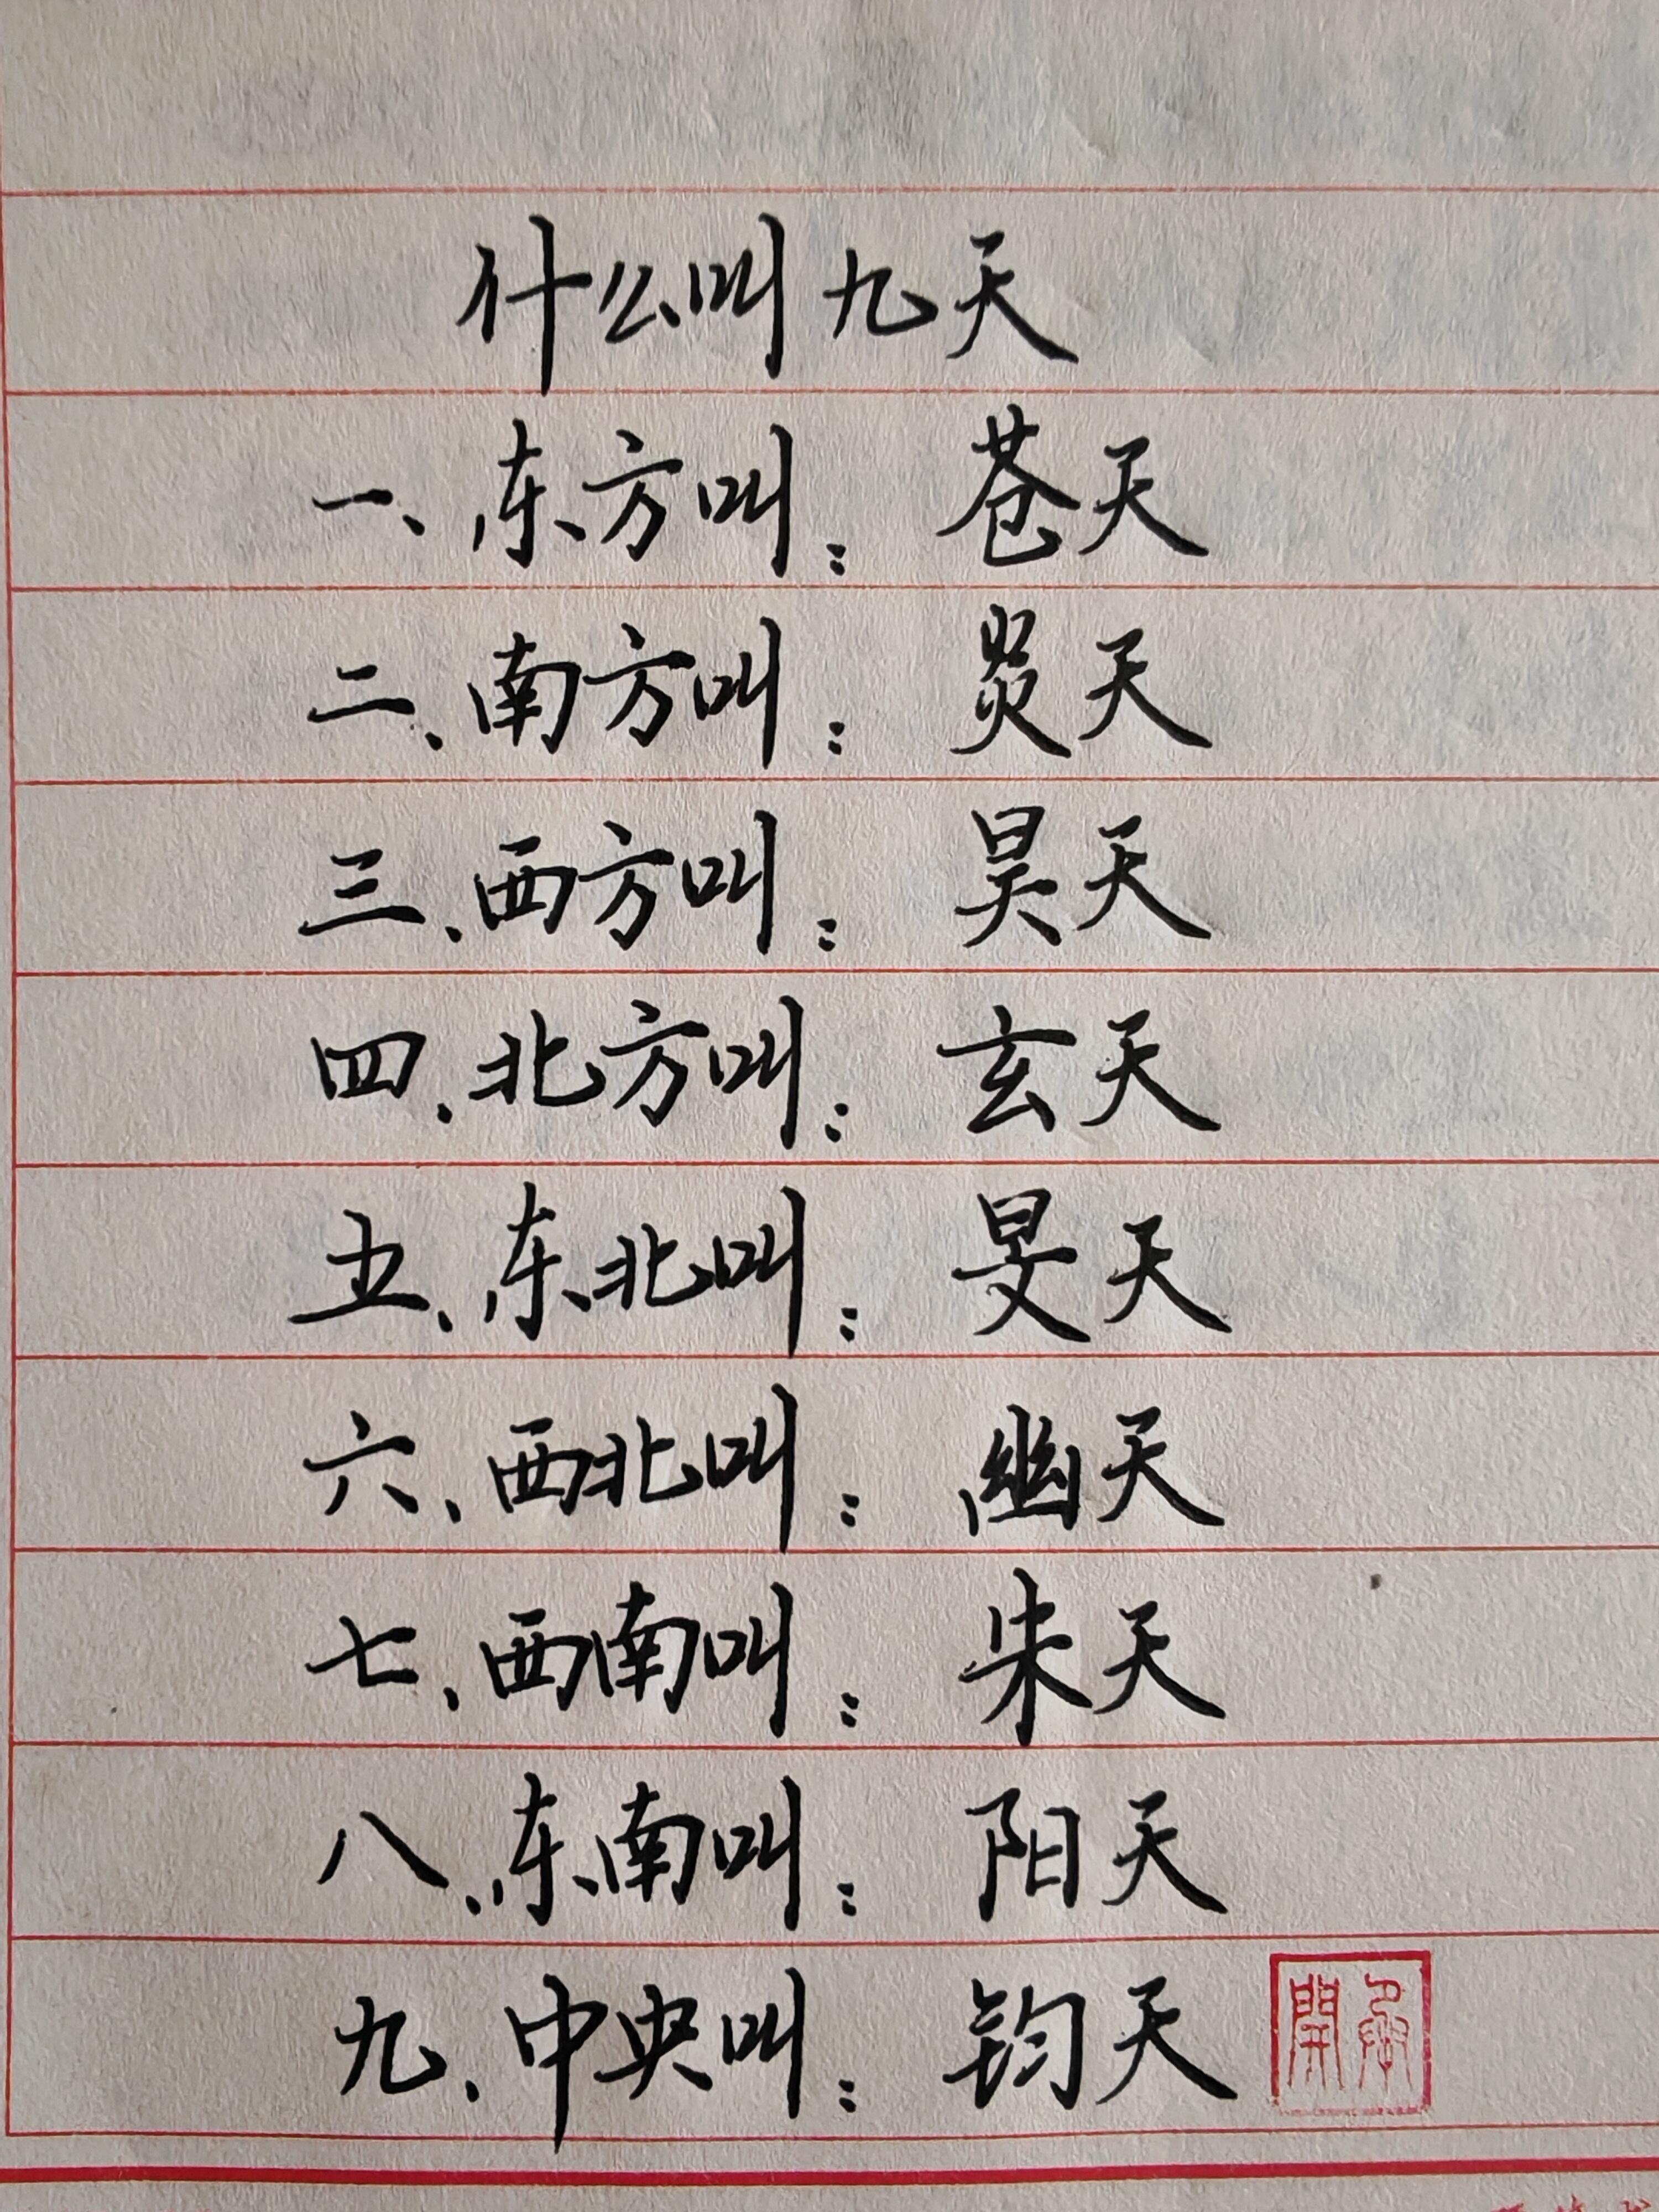 什么叫九天
一、东方叫：苍天
二、南方叫：炎天
三、西方叫：昊天
四、北方叫：玄天
五、东北叫：旻天
六、西北叫：幽天
七、西南叫：朱天
八、东南叫：阳天
九、中央叫：钧天